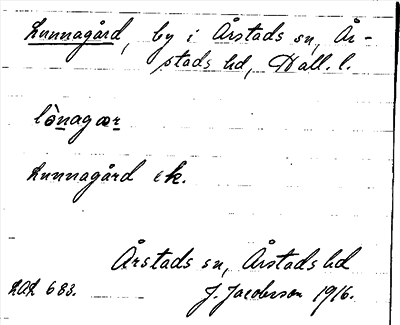 Lunnagård, by i Årstads sn, År-
stads hd, Hall. l.
lònagær
Lunnagård ek.
Årstads sn, Årstads hd
RAÄ 683. J. Jacobsson 1916.